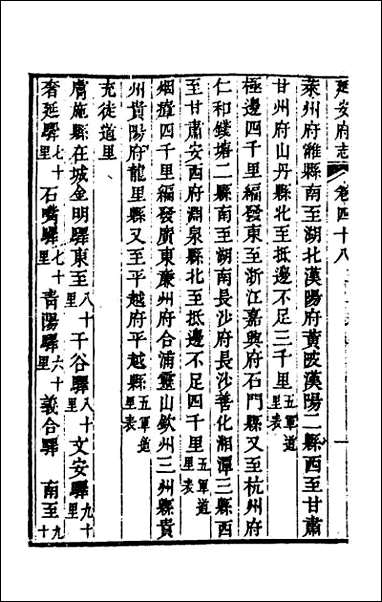 延安府志 卷四十八 一
萊州府濰縣南至湖北漢陽府黃陂漢陽二縣西至甘肅
甘州府山丹縣北至抵邊不足三千里五軍道里表
極邊四千里編發東至浙江嘉興府石門縣又至杭州府
仁和錢塘二縣南至湖南長沙府長沙善化湘潭三縣西
至甘肅安西府淵泉縣北至抵邊不足四千里五軍道里表
烟瘴四千里編發廣東廉州府合浦靈山欽州三州縣貴
州貴陽府龍里縣又至平越府平越縣五軍道里表
充徒道里
膚施縣在城金明驛東至八十里干谷驛八十里文安驛九十里
奢延驛七十里石嘴驛七十里青陽驛六十里義合驛 南至九十